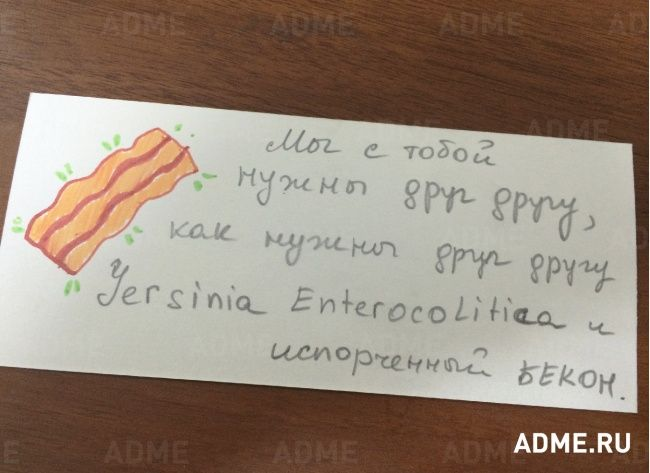 Мы с тобой
нужны друг другу,
как нужны друг другу
Yersinia Enterocolitica и
испорченный БЕКОН.
ADME.RU